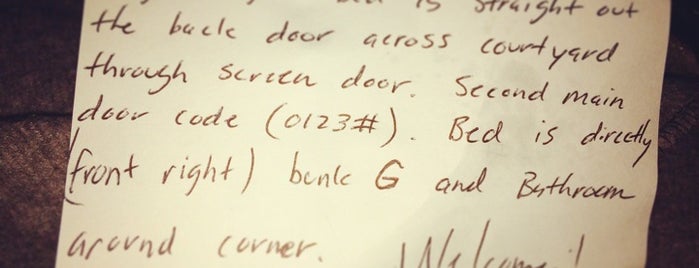 Bed is straight out
the back door across courtyard
through screen door. Second main
door code (0123#). Bed is directly
(front right) bunk G and Bathroom
around corner. Welcome!